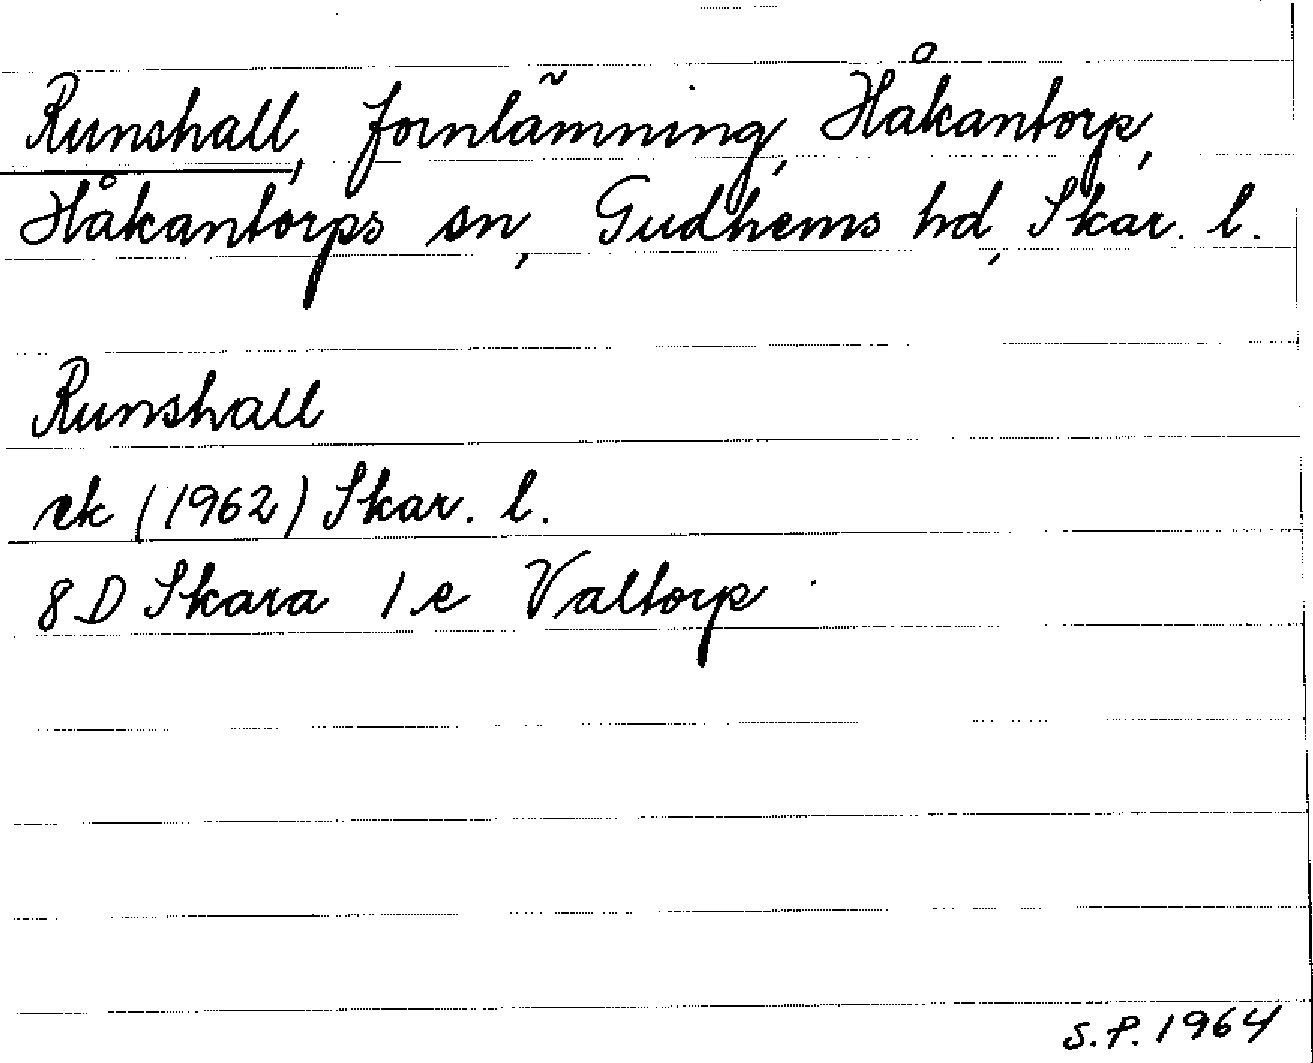 Runshall, fornlämning, Håkantorp,
Håkantorps sn, Gudhems hd, Skar. l.
Runshall
ek (1962) Skar. l.
8 D Skara 1 e Valtorp
S.P. 1964